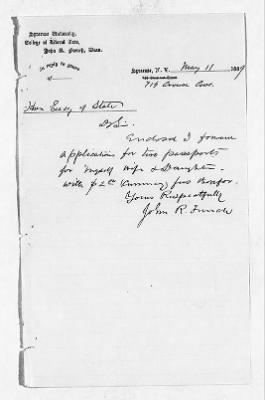 Syracuse University,
College of Liberal Arts,
John R. French, Dean.
In reply to yours
of
Syracuse, N. Y. May 18 1889
Ave.
Hon Secy of State
Dr Sir.
Enclosed I forward
applications for two passports
for Myself Wife & Daughter
with $2 00 (Currency) fees
Yours Respectfully
John R. French